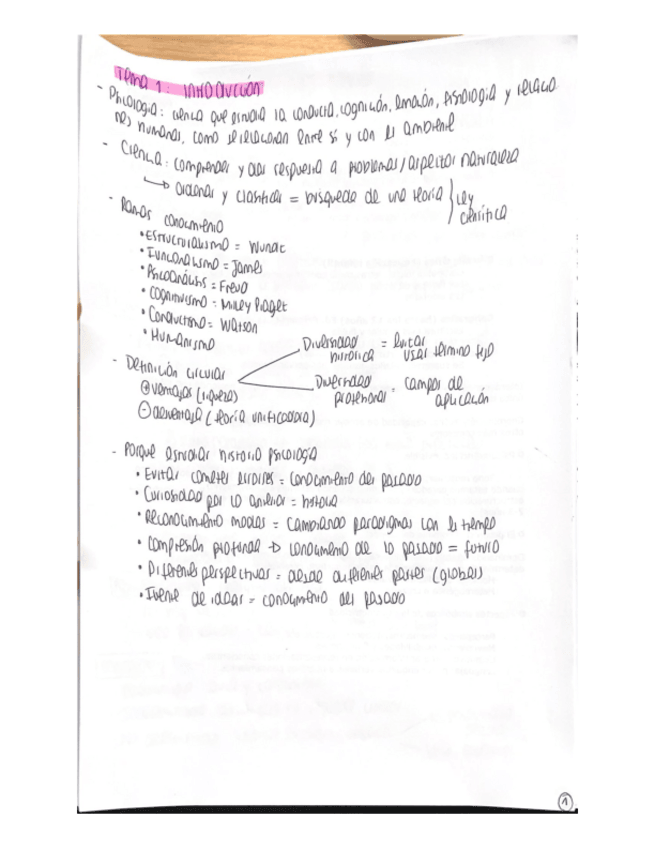 TEMA 1: INTRODUCCIÓN
- Psicología: ciencia que estudia la conducta, cognición, emoción, fisiología y relacio
nes humanas, como se relacionan entre sí y con el ambiente
- Ciencia: comprender y dar respuesta a problemas/aspectos naturaleza
→ Ordenar y clasificar = búsqueda de una teoría } Ley
científica
- Ramas conocimiento
• Estructuralismo =
• Funcionalismo = James
• Psicoanálisis = Freud
• Cognitivismo = Piaget
• Conductismo = Watson
• Humanismo
- Definición circular
Diversidad histórica = evitar usar término fijo
Diversidad profesional = campos de aplicación
⊕ ventajas (riqueza)
⊖ desventaja (teoría unificadora)
- Porque estudiar historia psicología
• Evitar cometer errores = conocimiento del pasado
• Curiosidad por lo anterior = historia
• Reconocimiento modas = cambiando paradigmas con el tiempo
• Compresión profunda → conocimiento de lo pasado = futuro
• Diferentes perspectivas = desde diferentes partes (global)
• Fuente de ideas = conocimiento del pasado
1